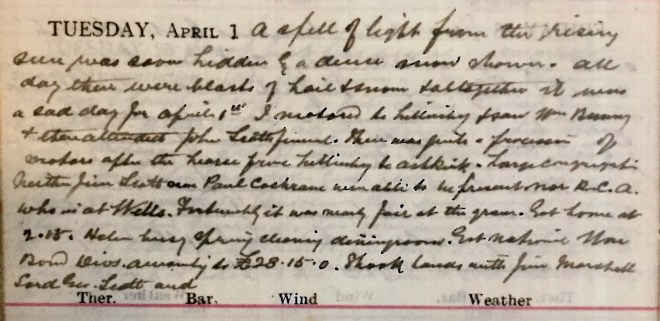 TUESDAY, APRIL 1 A spell of light from the rising
sun was soon hidden by a dense snow shower. All
day there were blasts of hail & snow & altogether it was
a sad day for April 1st. I motored to & saw Wm
& then attended John Scott funeral. There was quite a procession of
motors after the hearse from to Ashkirk. Large congregation
Neither Jim Scott nor Paul Cochrane were able to be present nor R.C.A.
who is at Wells. Fortunately it was nearly fair at the grave. Got home at
2.15. Helen busy spring cleaning diningroom. Got National War
Bond Divs. amounting to £28-15-0. Shook hands with Jim Marshall
Lord Geo. Scott and
Ther. Bar. Wind Weather